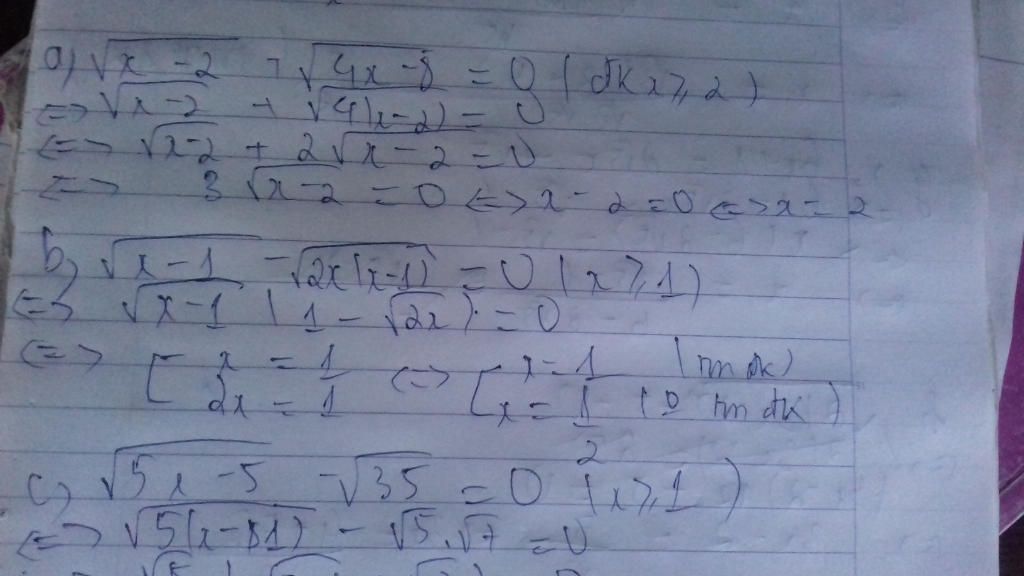 a) √(x-2) + √(4x-8) = 0 (đk x ≥ 2)
<=> √(x-2) + √(4(x-2)) = 0
<=> √(x-2) + 2√(x-2) = 0
<=> 3√(x-2) = 0 <=> x - 2 = 0 <=> x = 2
b) √(x-1) - √(2x(x-1)) = 0 (x ≥ 1)
<=> √(x-1) (1 - √(2x)) = 0
<=> [ x = 1 <=> [ x = 1 (tm đk)
2x = 1 x = 1/2 (0 tm đk)
c) √(5x-5) - √35 = 0 (x ≥ 1)
<=> √(5(x-1)) - √5.√7 = 0